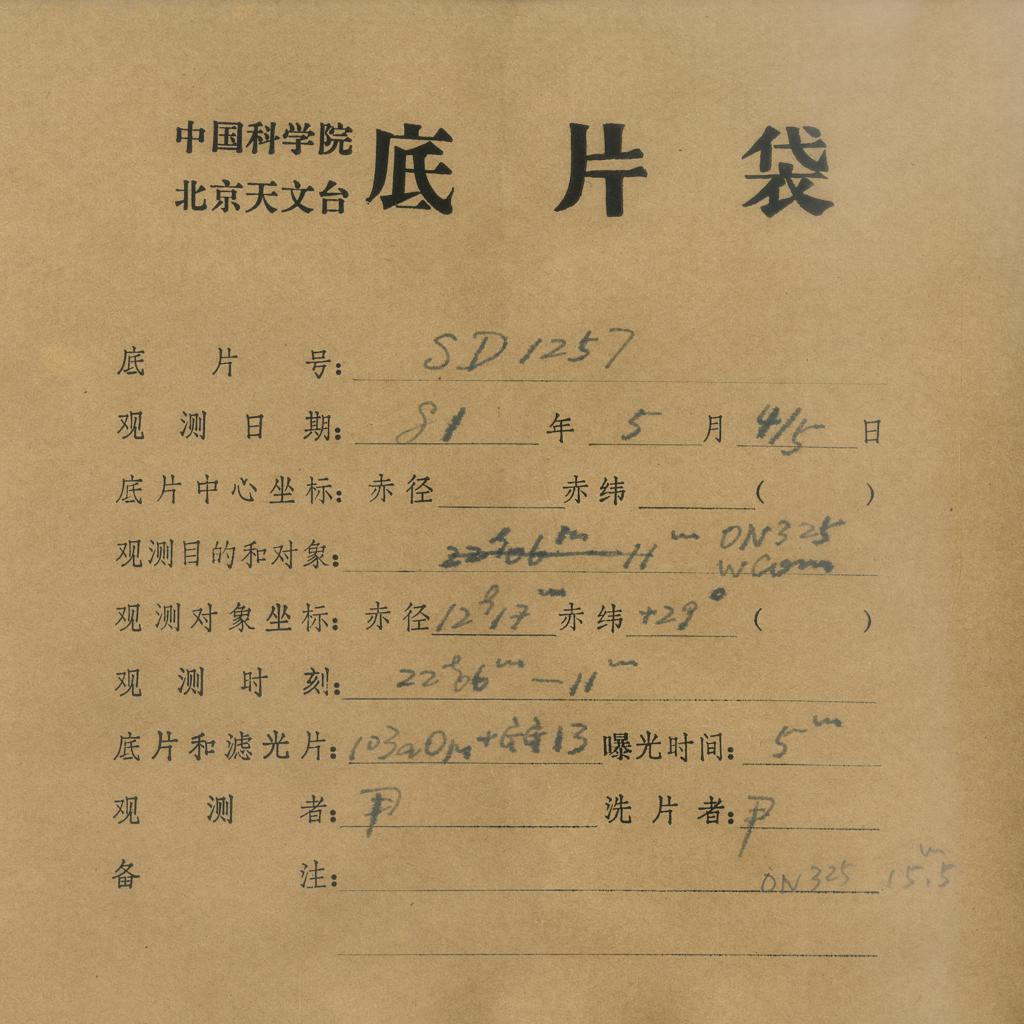 中国科学院
北京天文台
底片袋
底片号: SD1257
观测日期: 81年 5月 4/5日
底片中心坐标: 赤径 赤纬 ( )
观测目的和对象: 22h06m 11m ON325
WCom
观测对象坐标: 赤径 12h17m 赤纬 +29° ( )
观测时刻: 22h06m—11m
底片和滤光片: 103aO 13 曝光时间: 5m
观测者: 尹 洗片者: 尹
备注: ON325 15.5m